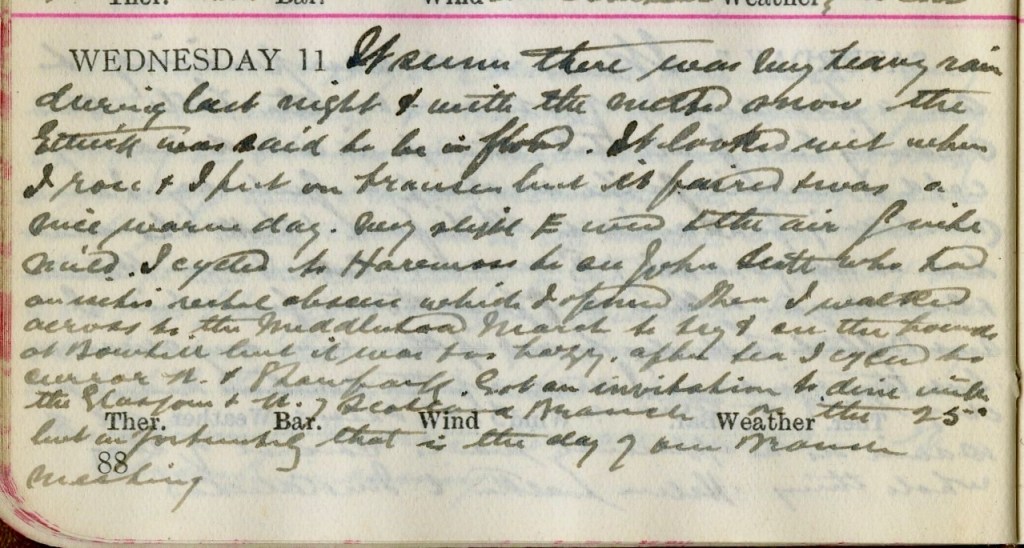 Ther. Bar. Wind Weather
WEDNESDAY 11 It seems there was very heavy rain
during last night & with the melted snow the
Ettrick was said to be in flood. It looked wet when
I rose & I put on trousers but it faired & was a
nice warm day. Very slight E wind & the air quite
mild. I cycled to Haremoss to see John Scott who had
an ischio rectal abscess which I opened. Then I walked
across to the Middlestead March to try & see the hounds
at Bowhill but it was too hazy. After tea I cycled to
H. & Philiphaugh. Got an invitation to dine with
the Glasgow & W. of Scotland Branch on the 25th
Ther. Bar. Wind Weather
but unfortunately that is the day of our Branch
88
meeting